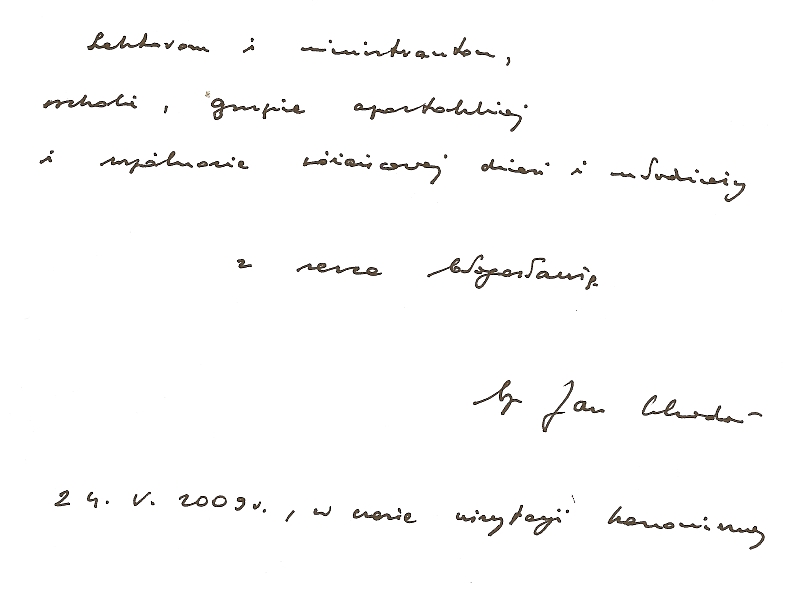 Lektorom i ministrantom,
scholi, grupie apostolskiej
i wspólnocie różańcowej dzieci i młodzieży
z serca błogosławię
bp Jan
24. V. 2009r., w czasie wizytacji kanonicznej